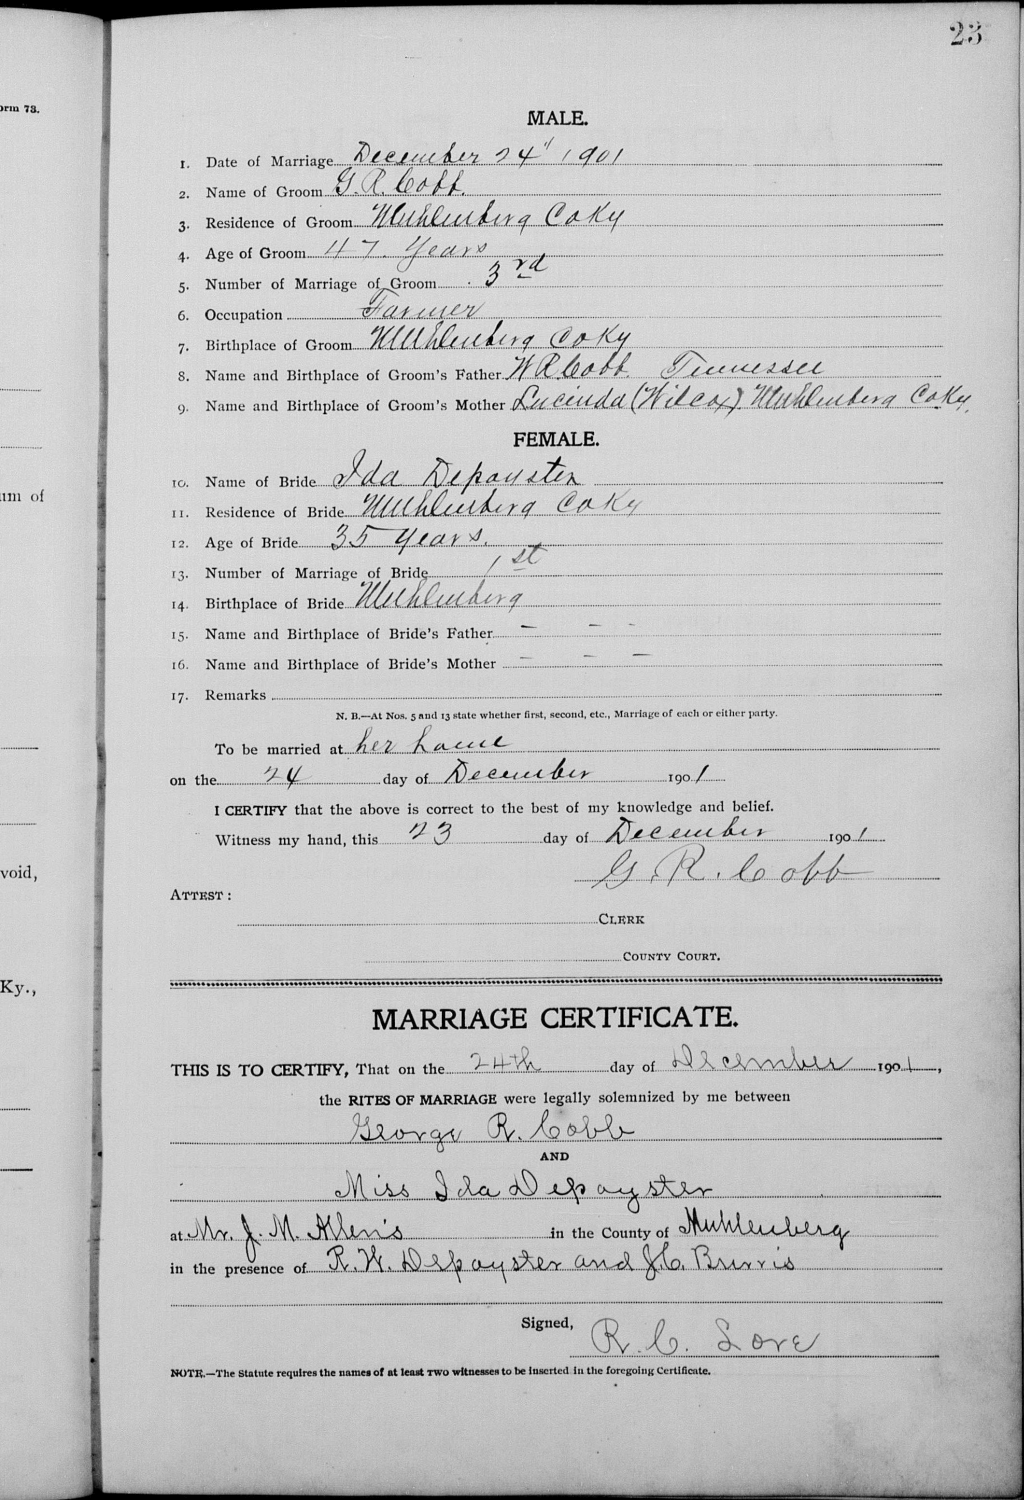 23
orm 73.
MALE.
1. Date of Marriage December 24" 1901
2. Name of Groom G. R. Cobb.
3. Residence of Groom Muhlenberg Co Ky
4. Age of Groom 47 Years
5. Number of Marriage of Groom 3rd
6. Occupation Farmer
7. Birthplace of Groom Muhlenberg Co Ky
8. Name and Birthplace of Groom's Father W R Cobb Tennessee
9. Name and Birthplace of Groom's Mother Lucinda (Wilcox) Muhlenberg Co Ky.
FEMALE.
um of
10. Name of Bride Ida Depoyster
11. Residence of Bride Muhlenberg Co Ky
12. Age of Bride 35 Years.
13. Number of Marriage of Bride 1st
14. Birthplace of Bride Muhlenberg
15. Name and Birthplace of Bride's Father — — —
16. Name and Birthplace of Bride's Mother — — —
17. Remarks
N. B.—At Nos. 5 and 13 state whether first, second, etc., Marriage of each or either party.
To be married at her home
on the 24 day of December 1901
I CERTIFY that the above is correct to the best of my knowledge and belief.
Witness my hand, this 23 day of December 1901
G. R. Cobb
void,
ATTEST:
CLERK
COUNTY COURT.
Ky.,
MARRIAGE CERTIFICATE.
THIS IS TO CERTIFY, That on the 24th day of December 1901,
the RITES OF MARRIAGE were legally solemnized by me between
George R. Cobb
AND
Miss Ida Depoyster
at Mr. J. M. Allen's in the County of Muhlenberg
in the presence of R. W. Depoyster and J. C. Burris
Signed,
R. C. Love
NOTE.—The Statute requires the names of at least TWO witnesses to be inserted in the foregoing Certificate.